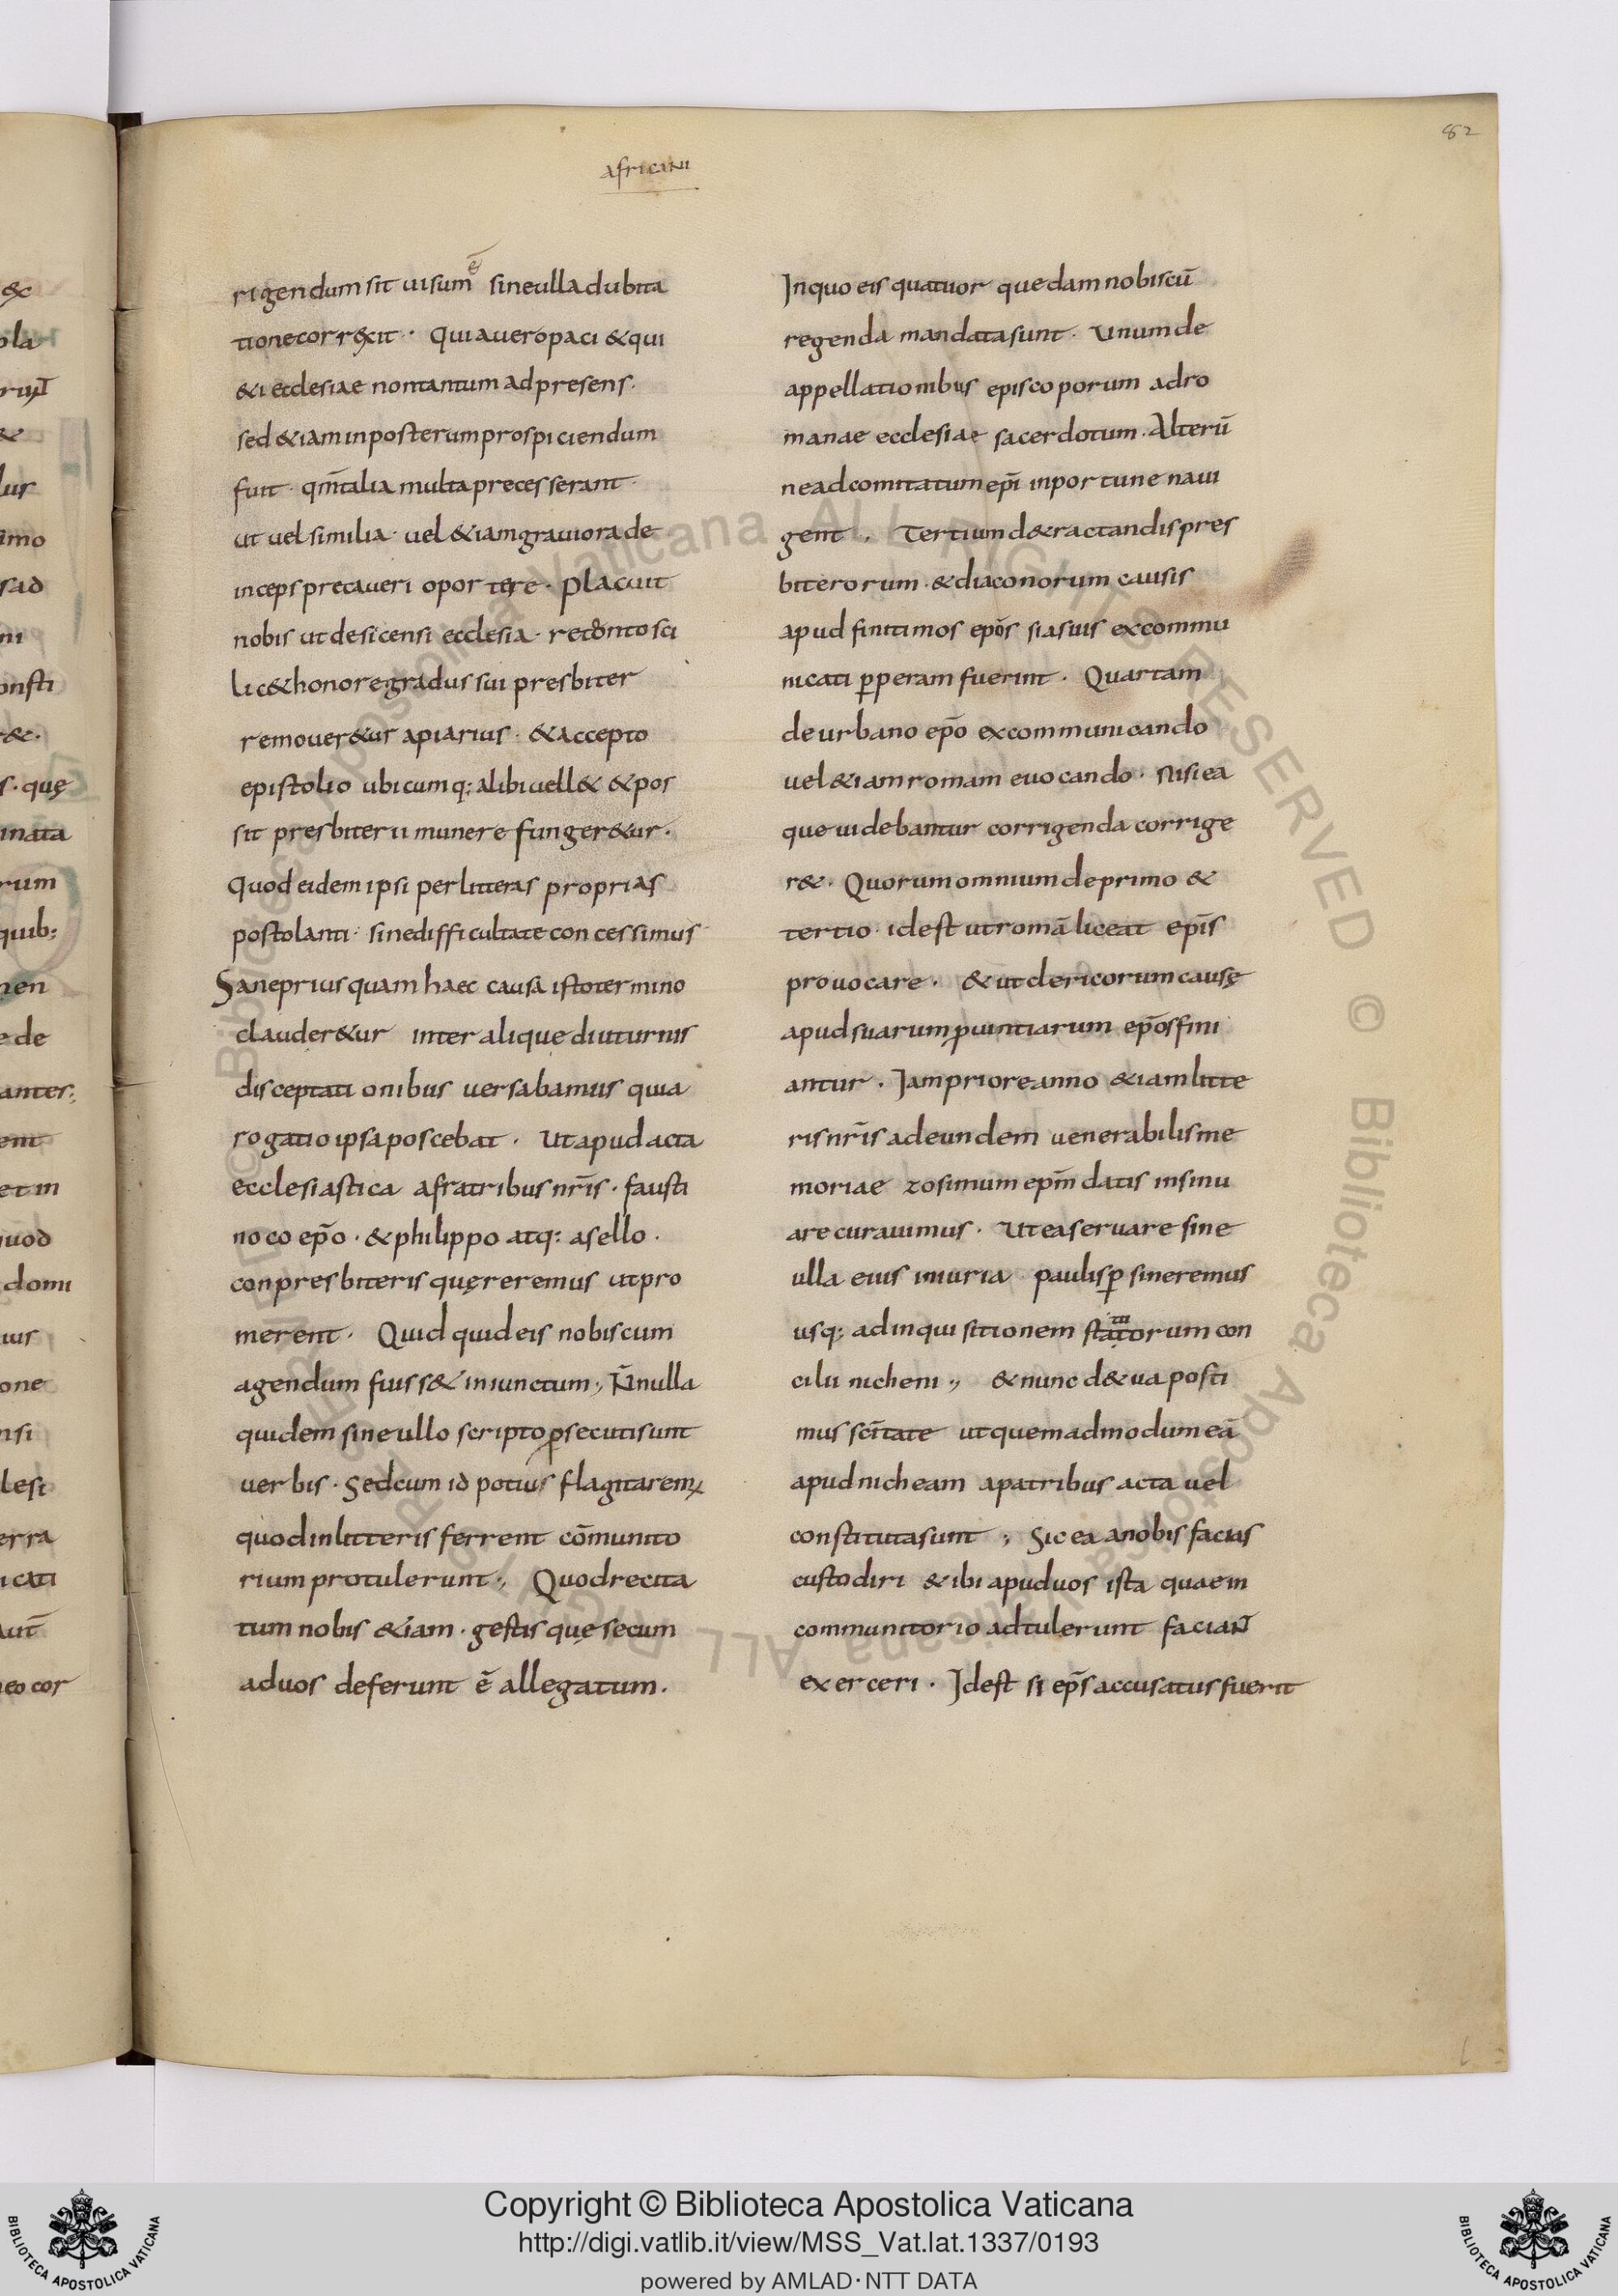 82
africani
rigendum sit uisum ē sine ulla dubita
tione correxit · Quia uero paci & qui
&i ecclesiae non tantum ad presens ·
sed &iam in posterum prospiciendum
fuit · qm̄ talia multa precesserant ·
ut uel similia · uel &iam grauiora de
inceps precaueri oportere · placuit
nobis ut de sicensi ecclesia ·
lic& honore gradus sui presbiter
remouer&ur apiarius · & accepto
epistolio ubicumq: alibi uell& & pos
sit presbiterii munere funger&ur ·
quod eidem ipsi per litteras proprias
postolanti · sine difficultate concessimus
Sane prius quam haec causa isto termino
clauder&ur inter alique diuturnis
disceptationibus uersabamus quia
rogatio ipsa poscebat · Ut apud acta
ecclesiastica a fratribus nr̄is · fausti
no co ep̄o · & philippo atq: asello ·
conpresbiteris quęreremus ut pro
merent · Quid quid eis nobiscum
agendum fuiss& iniunctum ·, N̄ nulla
quidem sine ullo scripto p̱secuti sunt
uerbis · Sed cum id potius flagitarem;
quod in litteris ferrent cōmunito
rium protulerunt ·, Quod recita
tum nobis &iam · gestis quę secum
ad uos deferunt ē allegatum ·
In quo eis quatuor quedam nobiscū
regenda mandata sunt · Unum de
appellationibus episcoporum ad ro
manae ecclesiae sacerdotum · Alterū
ne ad comitatum ep̄i inportune naui
gent · Tertium de tractandis pres
biterorum · & diaconorum causis
apud finitimos ep̄os si a suis excommu
nicati p̱peram fuerint · Quartam
de urbano ep̄o excommunicando
uel &iam romam euocando · Nisi ea
que uidebantur corrigenda corrige
r& · Quorum omnium de primo &
tertio · id est ut romā liceat ep̄is
prouocare · & ut clericorum causę
apud suarum p̱uintiarum ep̄os fini
antur · Iam priore anno &iam litte
ris nr̄is ad eundem uenerabilis me
moriae zosimum ep̄m datis insinu
are curauimus · Ut ea seruare sine
ulla eius iniuria paulisp̱ sineremus
usq: ad inquisitionem statutorum con
cilii nicheni ·, & nunc de ua posti
mus sc̄itate ut quemadmodum eā
apud nicheam a patribus acta uel
constituta sunt ·, Sic ea a nobis facias
custodiri & ibi apud uos ista quae in
communitorio adtulerunt facianT̄
exerceri · Id est si ep̄s accusatus fuerit
Copyright © Biblioteca Apostolica Vaticana
http://digi.vatlib.it/view/MSS_Vat.lat.1337/0193
powered by AMLAD·NTT DATA